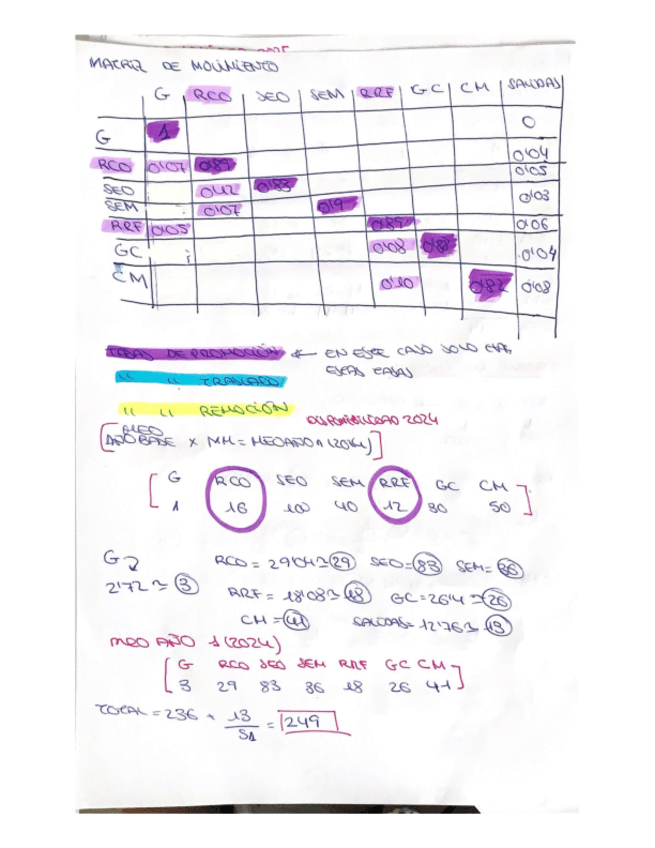 MATRIZ DE MOVIMIENTO
G RCO SEO SEM RRF GC CM SALIDAS
G 1 0
RCO 0'07 0'89 0'04
0'05
SEO 0'12 0'83
SEM 0'07 0'9 0'03
RRF 0'05 0'89 0'06
GC 0'08 0'88 0'04
CM 0'10 0'82 0'08
TASAS DE PROMOCIÓN ← EN ESTE CASO SOLO HAY
ESTAS TASAS
" " TRASLADO
" " REMOCIÓN
DISPONIBILIDAD 2024
[MEO
AÑO BASE × MM = MEO AÑO 1 (2024)]
[ G RCO SEO SEM RRF GC CM ]
1 16 100 40 12 30 50
G
2'72 ≃ 3
RCO = 29'04 ≃ 29 SEO = 83 SEM = 36
RRF = 18'08 ≃ 18 GC = 26'4 ≃ 26
CM = 41 SALIDAS = 12'76 ≃ 13
MEO AÑO 1 (2024)
[ G RCO SEO SEM RRF GC CM ]
3 29 83 36 18 26 41
TOTAL = 236 + 13 = 249
S1